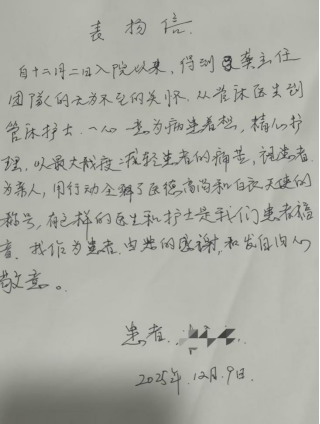 表扬信
自十二月二日入院以来，得到龚主任
团队的无为不至的关怀，从管床医生到
管床护士，一心一意为病患着想，精心护
理，以最大程度减轻患者的痛苦，视患者
为亲人，用行动全解了医德高尚和白衣天使的
称号，有这样的医生和护士是我们患者福
音。我作为患者，由忠的感谢，和发自内心
敬意。
患者
2025年12月9日